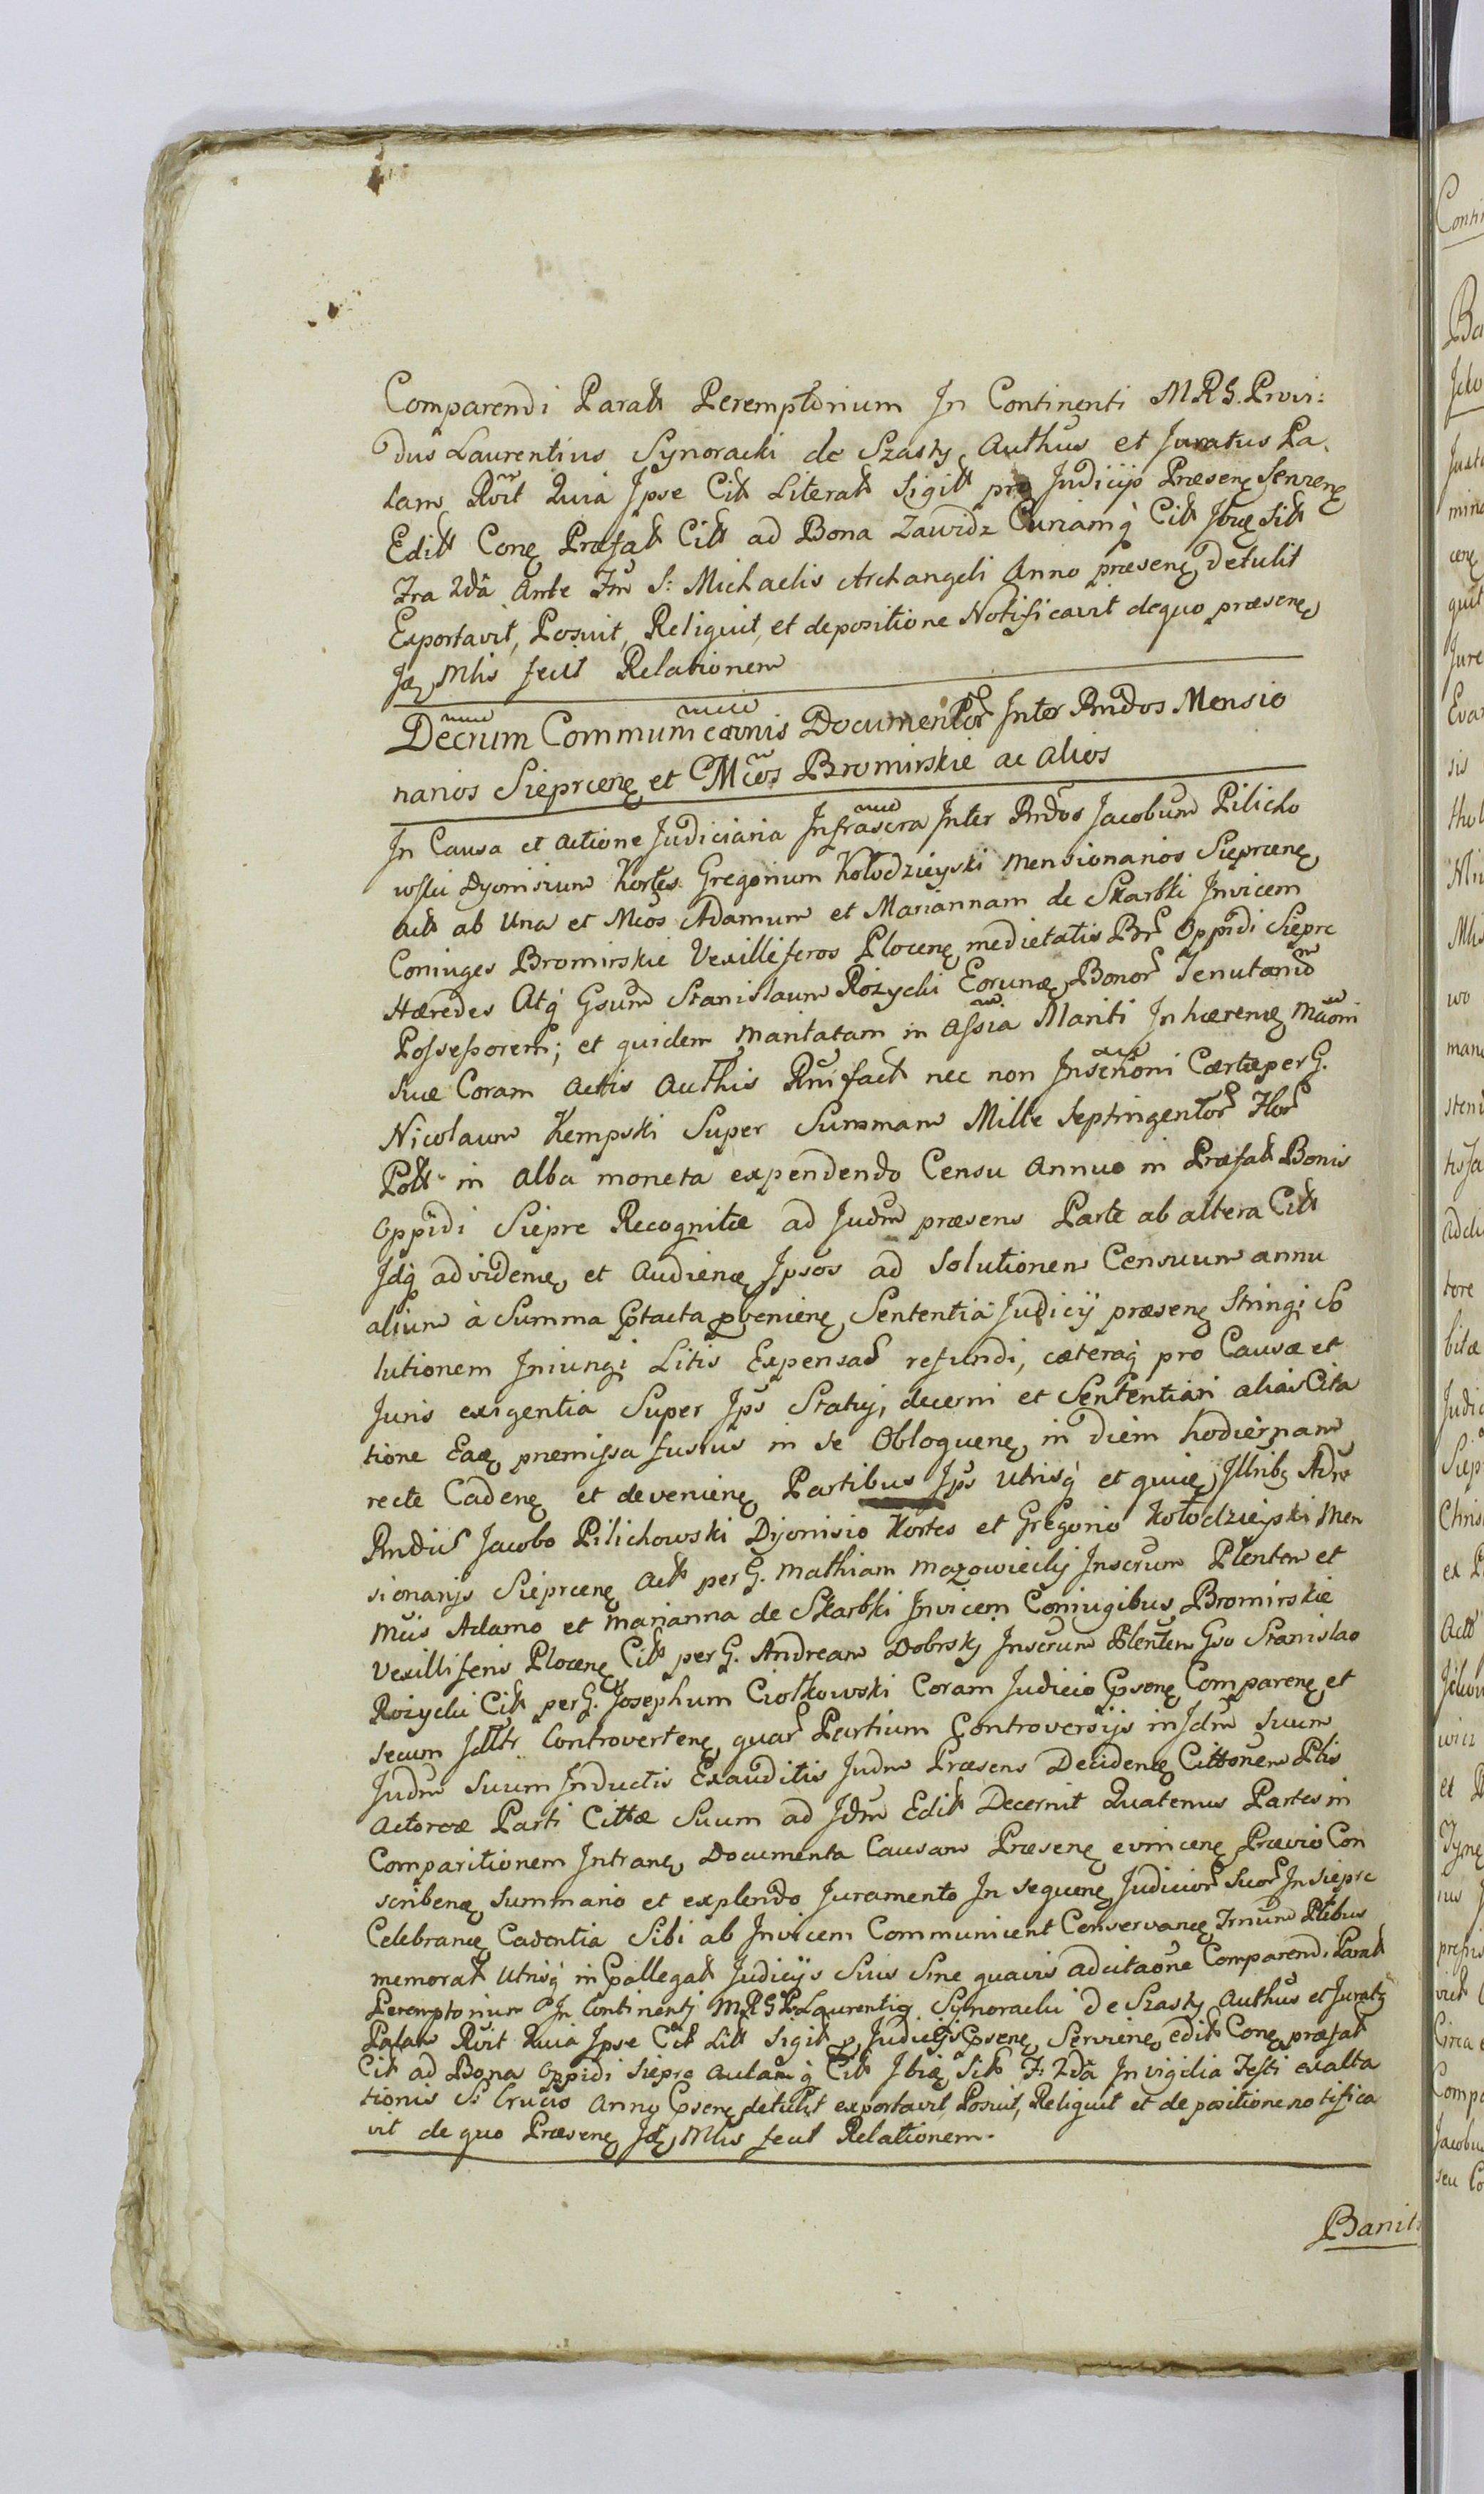 Comparendi Paratt Peremptorium In Continenti M.R.G. Provi:
dus Laurentius Synoracki de Szasky Authus et Juratus Pa,
lam Rvit Quia Ipse Citt Literatt Sigitt pro Judicijs Præsenę Servienę
Editt Conę Præfatt Citt ad Bona Zawidz Curiamq̀ Citt Ibię Sitt
Fra 2dâ Ante Fm S: Michaelis Archangeli Anno præsenę detulit
Exportavit, Posuit, Reliquit, et depositione Notificavit dequo præsenę
Jæ, Mlis fecit Relationem
Decrum Communicaonis Documentor Inter Rndos Mensio
narios Sieprcenę et Mcos Bromirskie ac alios
In Causa et actione Judiciaria Infrascra Inter Rndos Jacobum Pilicho
wski Dyonisium Kortes Gregorium Kołodzieyski Mensionarios Sieprcenę
Actt ab Una et Mcos Adamum et Mariannam de Skarbki Invicem
Coniuges Bromirskie Vexilliferos Plocenę medietatis Br Oppidi Siepre
Hæredes Atq̀ Gsum Stanislaum Rożycki Eorumę Bonor Tenutorium
Possessorem; et quidem maritatam in Assia Mariti Inhærenę
suæ Coram Actis Authis Rnifact nec non Inscrioni Certæ per G.
Nicolaum Kempski Super Summam Mille Septingentor Flor
Poltt in alba moneta expendendo Censu Annuo in Præfatt Bonis
Oppidi Siepre Recognitæ ad Judm præsens Parte ab altera Citt
Idq̀ ad videnę, et Audienę Ipsos ad Solutionem Censuum annu
alium à Summa Ptacta pvenienę, Sententia Judicij præsenę Stringi So
lutionem Iniungi Litis Expensas refundi, cæteraq̀ pro Causæ et
Juris exigentia Super Ips Statuj, decerni et Sententiari alias Cita
tione Eaę, præmissa fusius in se Obloquenę, in diem hodiernam
recte Cadenę et devenienę Partibus Ips Utrisq̀ et quię, Illribz Adr
Rndis Jacobo Pilichowski Dyonisio Kortes et Gregorio Kołodzieyski Men
sionarijs Sieprcenę Actt per G. Mathiam Mazowiecky Inscrum Plenten et
Mcis Adamo et Marianna de Skarbki Invicem Coniugibus Bromirskie
Vexilliferis Plocenę Citt per G. Andream Dobrsky Inscrum Plenten Gso Stanislao
Rożycki Citt per G. Josephum Ciołkowski Coram Judicio Psenę Comparenę et
secum Jdltr Controvertenę quar Partium Controversijs in Jdm Suum
Judm Suum Inductis Exauditis Judm Præsens Decidenę Cittonem Ptis
Actoreæ Parti Cittæ Suum ad Jdm Editt Decernit Quatenus Partes in
Comparitionem Intranę Documenta Causam Præsenę evincenę Prævio Con
scribenę, Summario et explendo Juramento In sequenę Judicior Suor In Siepre
Celebranę Cadentia Sibi ab Invicem Communicent Conservanę Trnum Ptibus
memoratt Utrisq̀ in Pallegatt Judicijs Suis Sine quavis adcitaone Comparendi Paratt
Peremptorium In Continenti M R G P Laurentiq Synoracki de Szasky Authus et Juratq
Palam Rvit Quia Ipse Citt Litt Sigitt p Judicijs Psenę, Servienę, editt Conę præfatt
Citt ad Bona Oppidi Siepre Aulamq̀ Citt Ibię Sitt F: 2dâ In vigilia Festi exalta
tionis S: Crucis Anno Psenę detulit exportavit, Posuit, Reliquit et de positione notifica
vit de quo Præsenę Jdę, Mlis fecit Relationem.